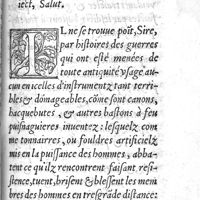 iect, Salut.
IL ne se trouue poīt, Sire,
par histoires des guerres
qui ont esté menées de
toute antiquité vsage au-
cun en icelles d'instrumentz tant terri-
bles & dōmageables, cōme sont canons,
hacquebutes, & autres bastons à feu
puisnaguieres inuentez: lesquelz com
me tonnairres, ou fouldres artificielz
mis en la puissance des hommes, abba-
tent ce qu'ilz rencontrent faisant resi-
stence, tuent, brisent & blessent les mem
bres des hommes en tresgrāde distance: